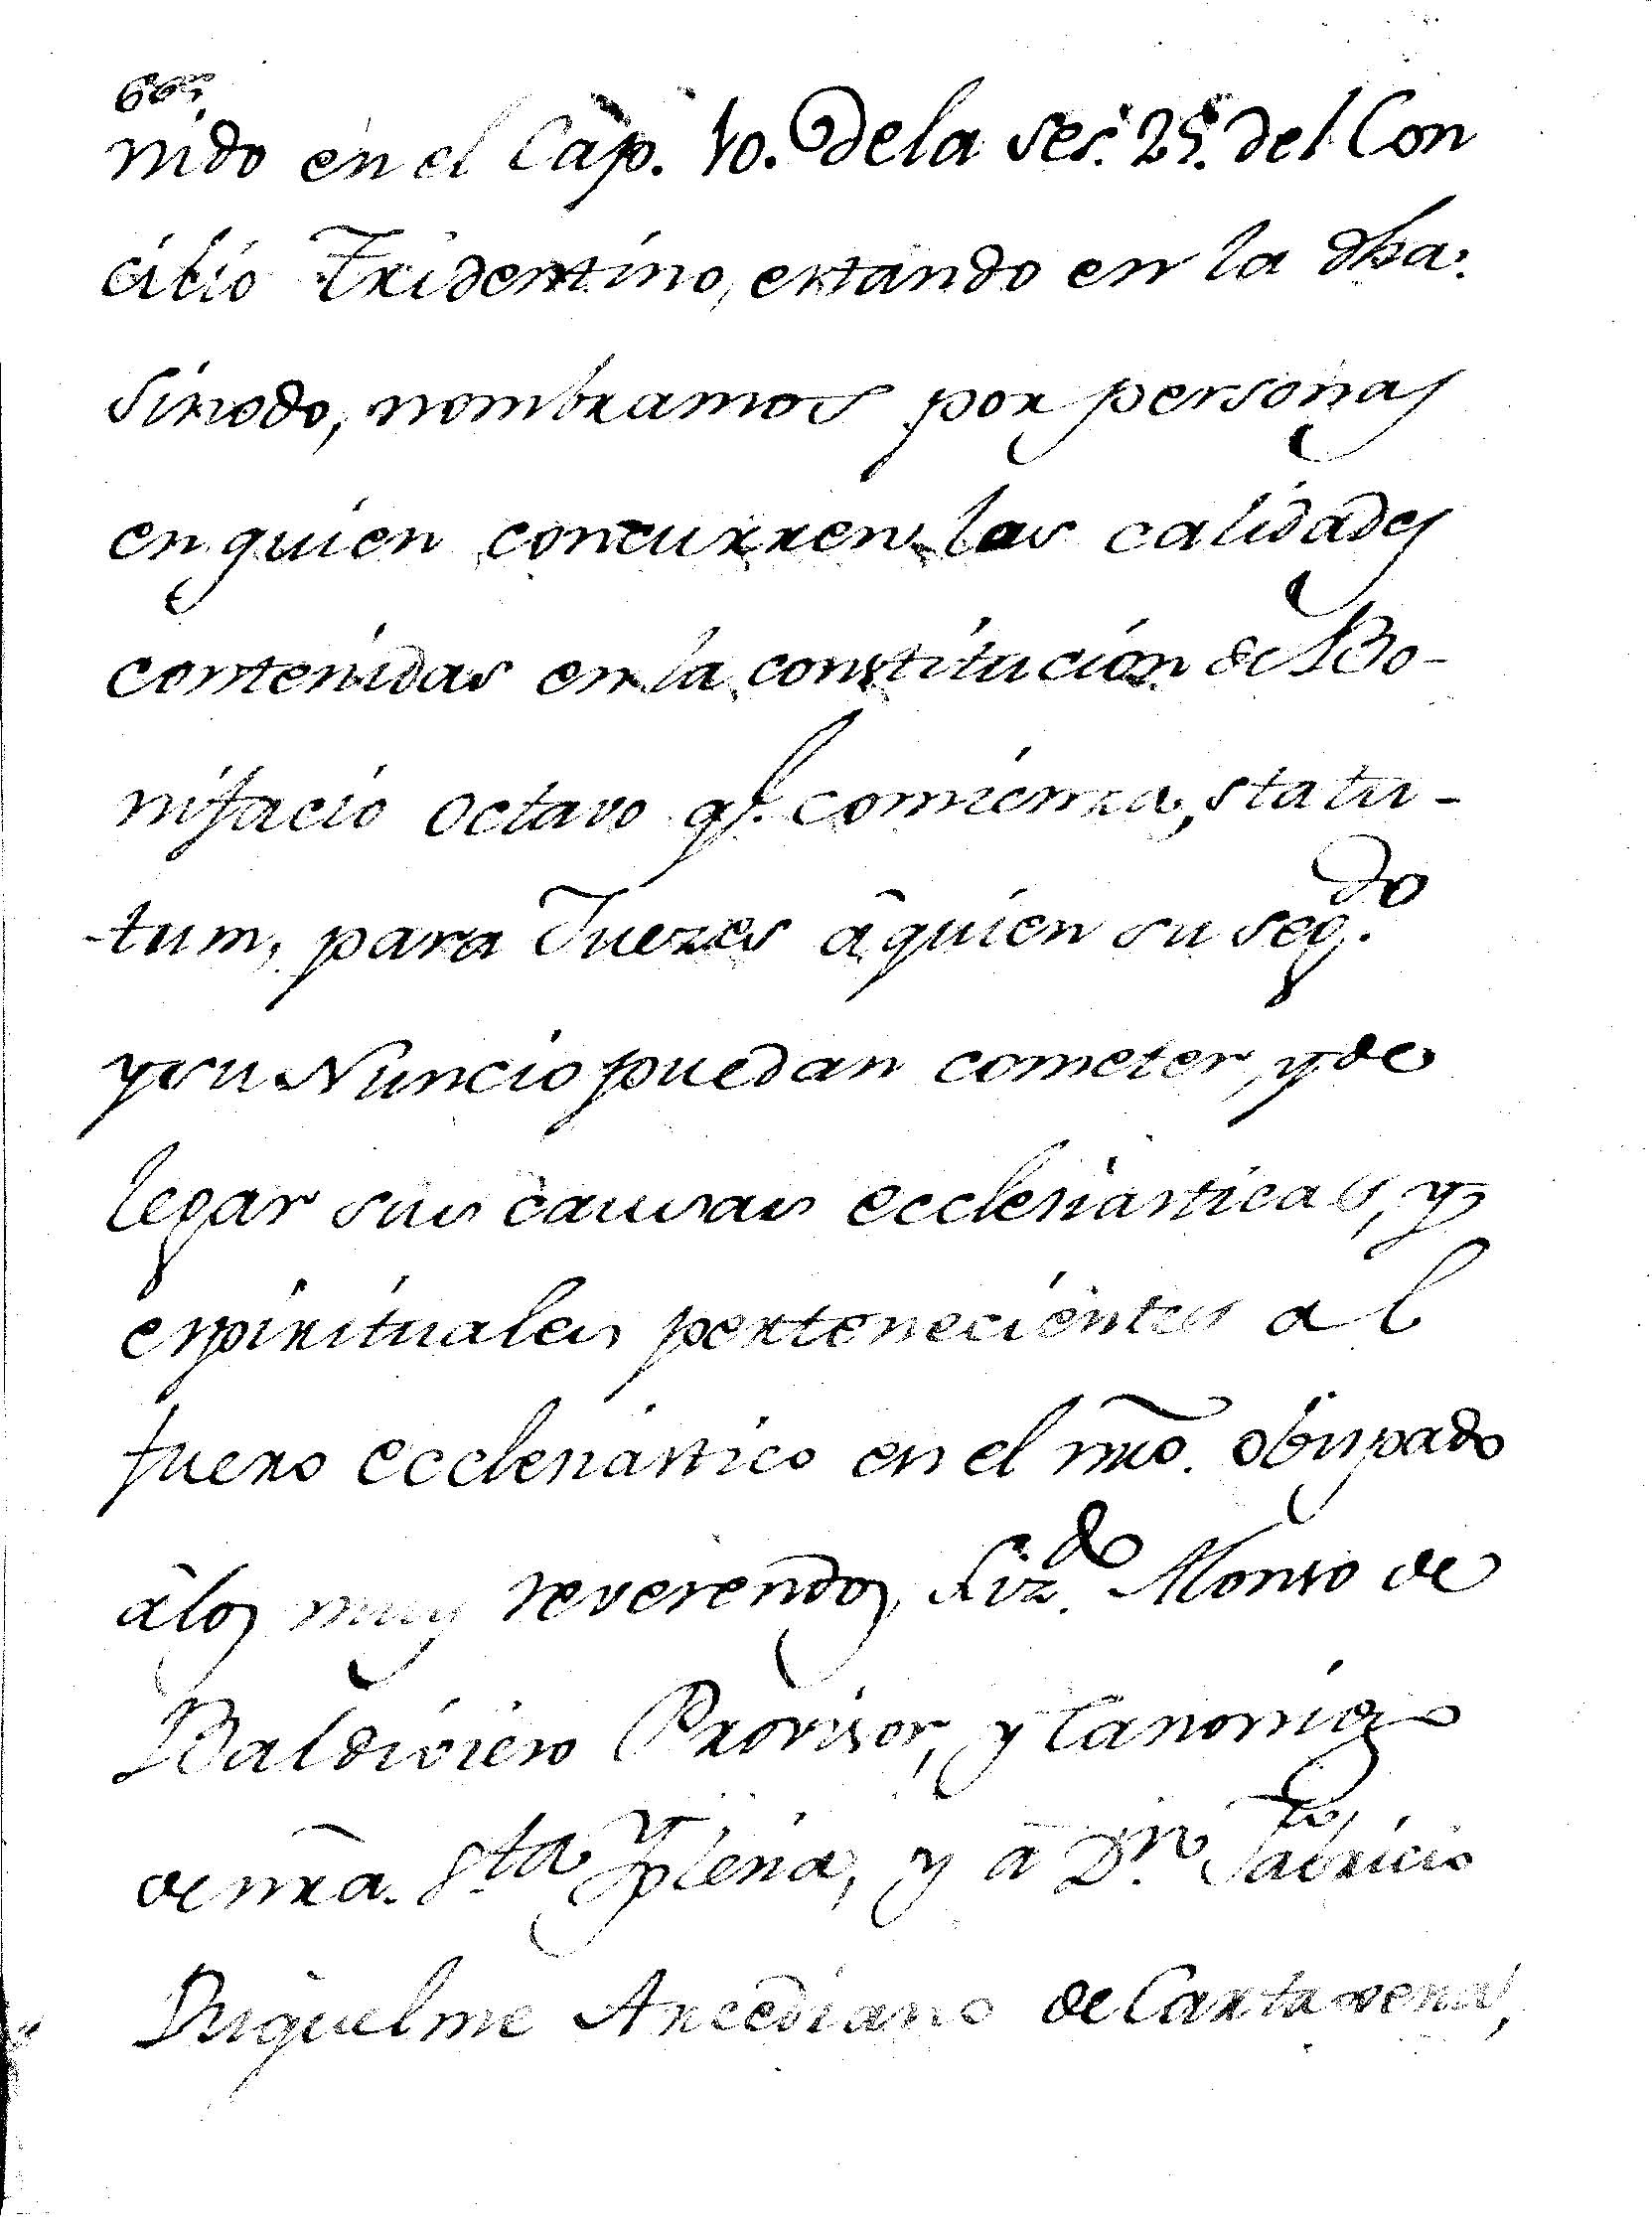 nido en el Cap. 10. dela ses. 25. del Con
cilio Tridentino, estando en la dha.
Sinodo, nombramos por personas
en quien concurren las calidades
contenidas en la constitución de Bo-
nifacio octavo ql. comienza, statu-
-tum, para Juezes â quien su segdo.
y su Nuncio puedan cometer, y de
legar sus causas ecclesiasticas, y
espirituales pertenecientes al
fuero ecclesiástico en el nro. obispado
â los muy reverendos, Lizdo. Alonso de
Baldivieso Provisor, y Canonigo
de nra. Sta Yglesia, y â Dn. Fabricio
Riquelme Arcediano de Cartagena,